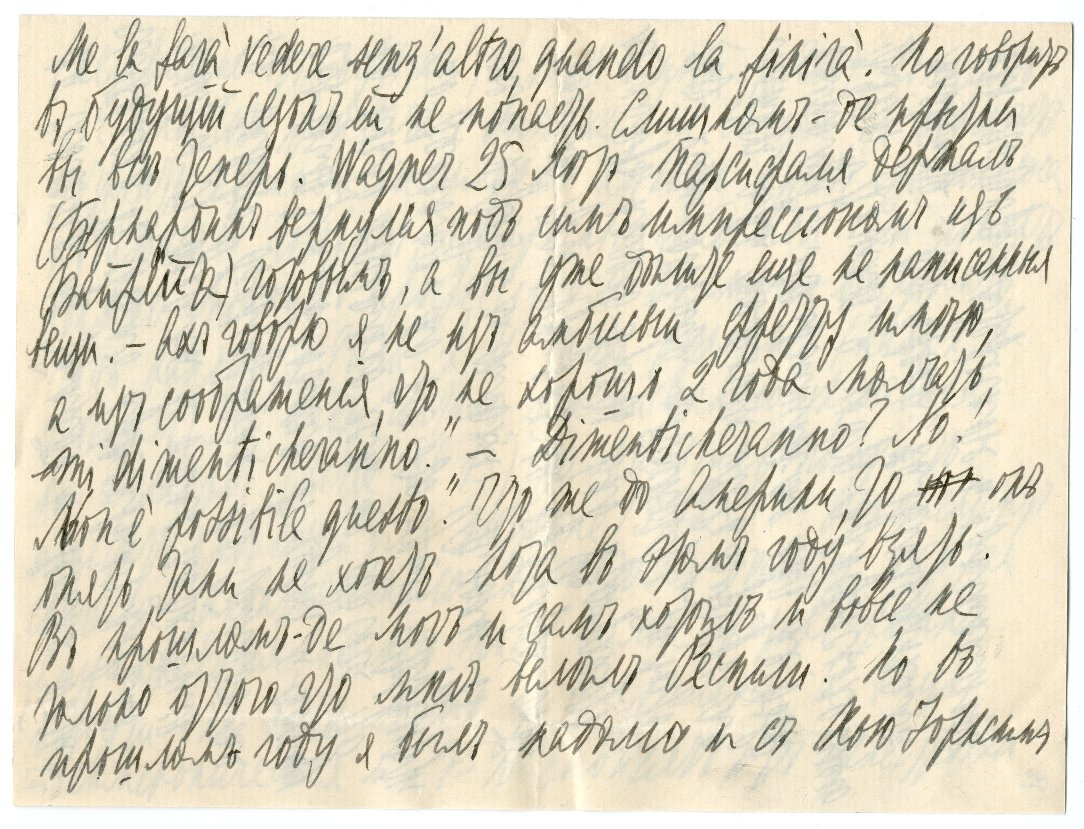 Me la farà vedere senz'altro, quando la finirà. Но говоритъ
въ будущій сезонъ ей не попаеть. Слишкомъ-де прытки
вы всѣ теперь. Wagner 25 лѣтъ Парсифаля держалъ
(Бернардонъ вернулся подъ симъ импрессіономъ изъ
Байрейта) готовымъ, а вы уже больше еще не написанныя
вещи. – Ахъ говорю я не изъ амбисьи фретту имѣю,
а изъ соображенія, что „не хорошо 2 года молчать,
mi dimenticheranno." – Dimenticheranno? No!
Non è possibile questo." Что же до Америки, то онъ
опять таки не хочетъ пока въ этомъ году взять.
Въ прошломъ-де могъ и самъ хотѣлъ и вовсе не
только оттого что мнѣ велѣлъ Респиги. Но въ
прошломъ году я былъ надолго и съ Нью Іоркскимъ